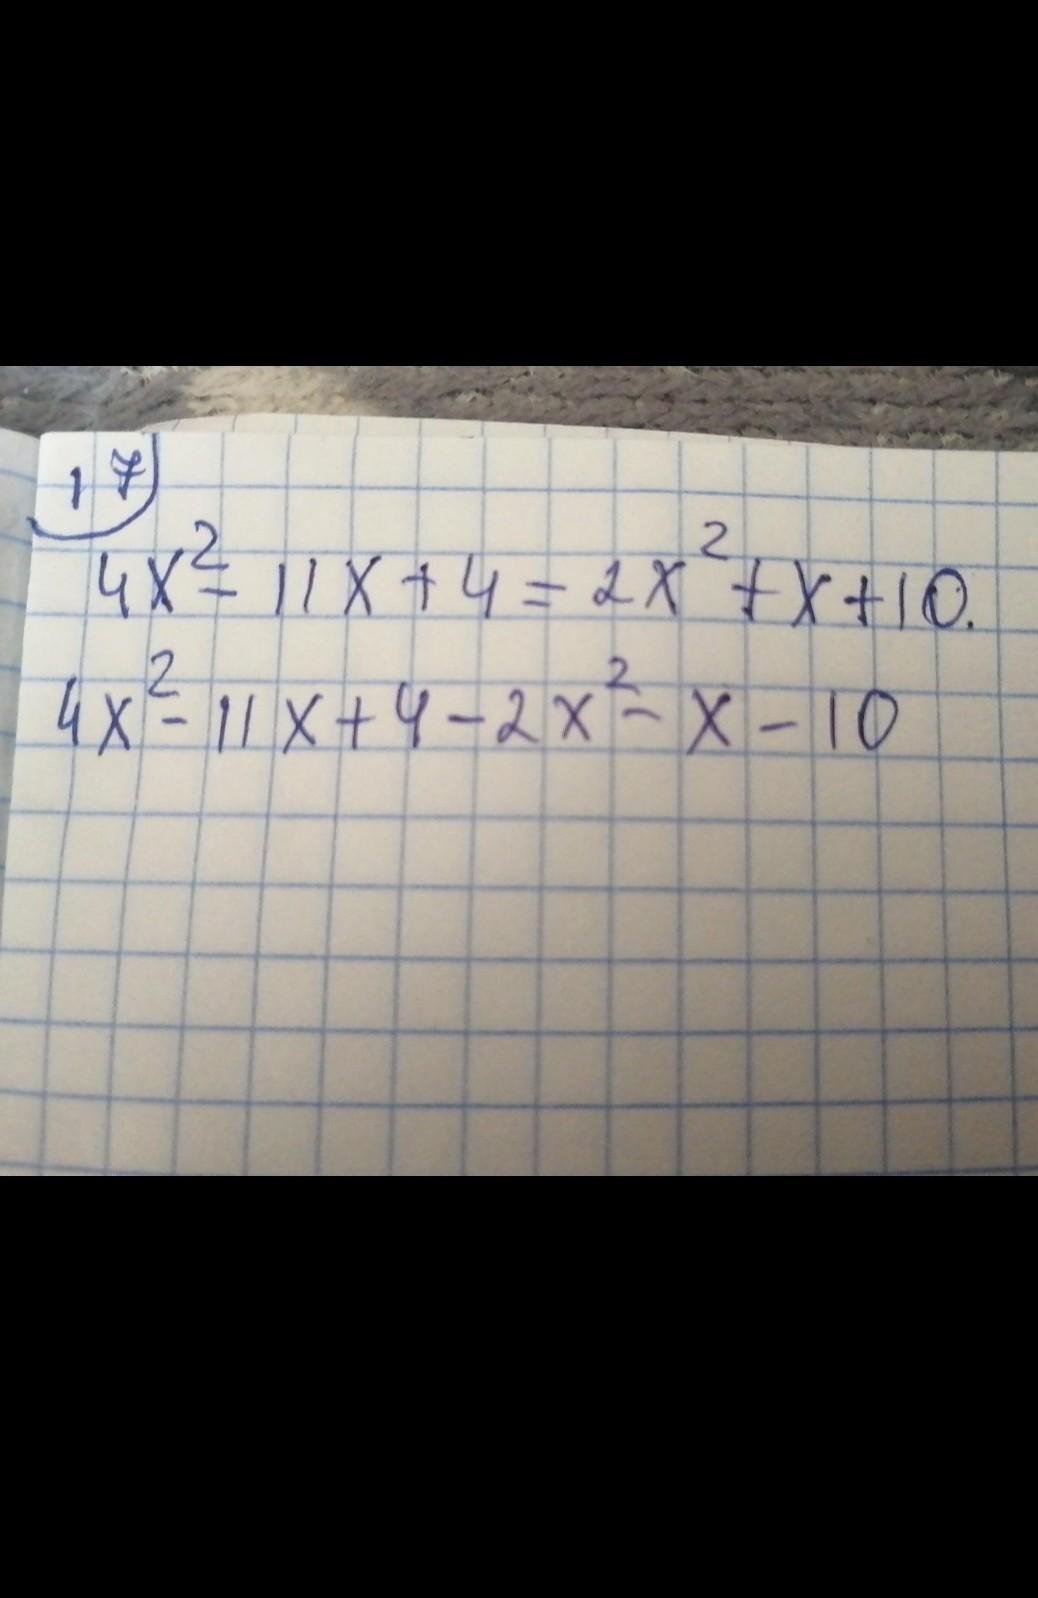 17
4x² - 11x + 4 = 2x² + x + 10.
4x² - 11x + 4 - 2x² - x - 10